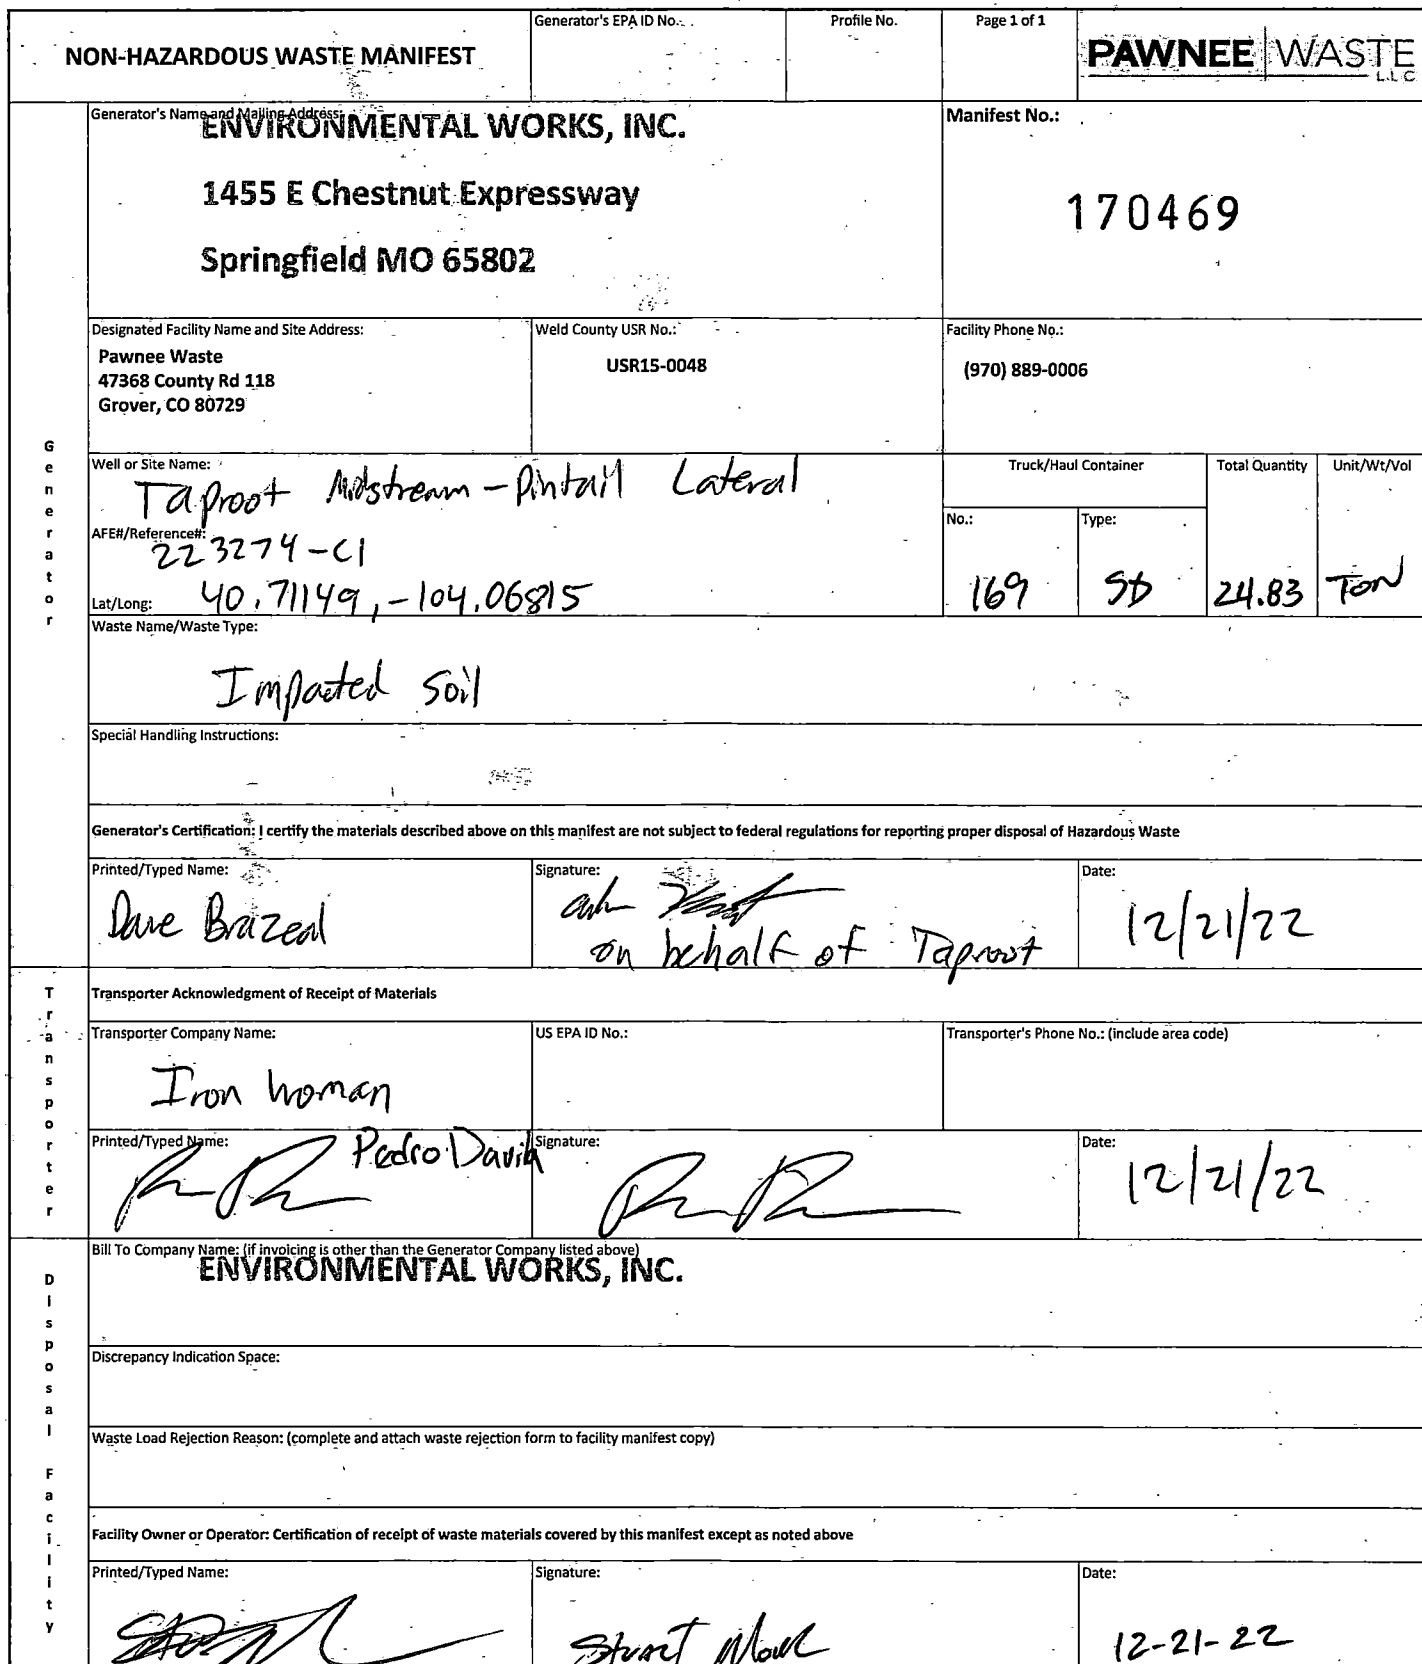 NON-HAZARDOUS WASTE MANIFEST
Generator's EPA ID No.:
Profile No.
Page 1 of 1
PAWNEE WASTE
LLC
Generator's Name and Mailing Address:
ENVIRONMENTAL WORKS, INC.
1455 E Chestnut Expressway
Springfield MO 65802
Manifest No.:
170469
Designated Facility Name and Site Address:
Pawnee Waste
47368 County Rd 118
Grover, CO 80729
Weld County USR No.:
USR15-0048
Facility Phone No.:
(970) 889-0006
Generator
Well or Site Name:
Taproot Midstream - Pintail Lateral
AFE#/Reference#:
223274-C1
Lat/Long: 40.71149, -104.06815
Truck/Haul Container
Total Quantity
Unit/Wt/Vol
No.:
Type:
169
SD
24.83
TON
Waste Name/Waste Type:
Impacted Soil
Special Handling Instructions:
Generator's Certification: I certify the materials described above on this manifest are not subject to federal regulations for reporting proper disposal of Hazardous Waste
Printed/Typed Name:
Dave Brazeal
Signature:
on behalf of Taproot
Date:
12/21/22
Transporter
Transporter Acknowledgment of Receipt of Materials
Transporter Company Name:
Iron Woman
US EPA ID No.:
Transporter's Phone No.: (include area code)
Printed/Typed Name:
Pedro Davila
Signature:
Date:
12/21/22
Disposal Facility
Bill To Company Name: (if invoicing is other than the Generator Company listed above)
ENVIRONMENTAL WORKS, INC.
Discrepancy Indication Space:
Waste Load Rejection Reason: (complete and attach waste rejection form to facility manifest copy)
Facility Owner or Operator: Certification of receipt of waste materials covered by this manifest except as noted above
Printed/Typed Name:
Signature:
Stuart
Date:
12-21-22